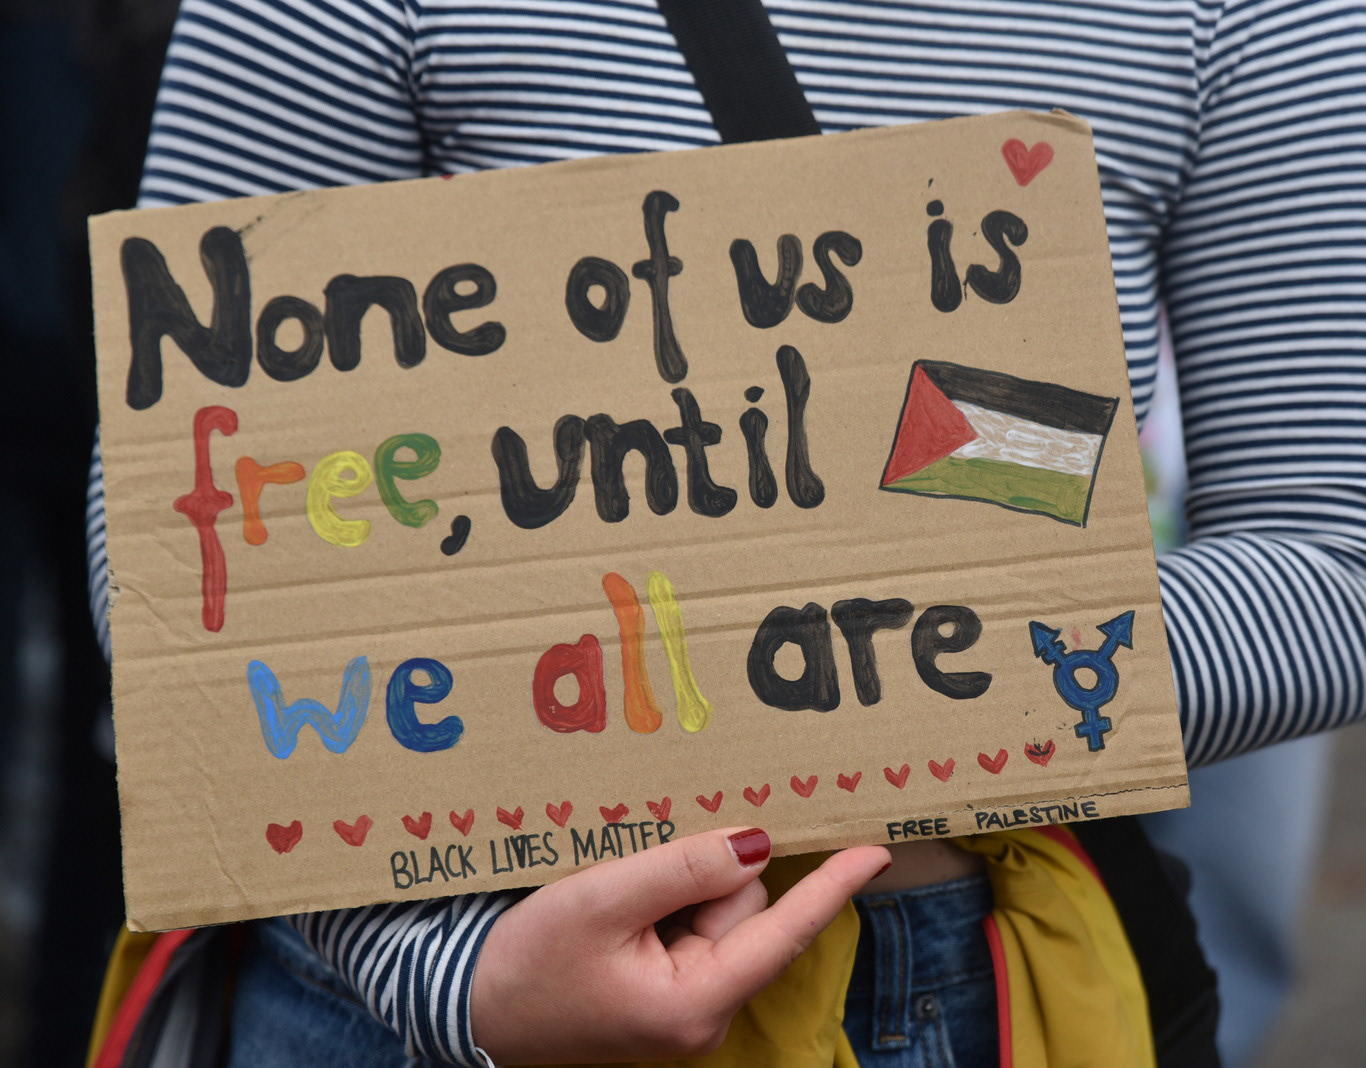 None of us is
free, until
we all are
BLACK LIVES MATTER
FREE PALESTINE